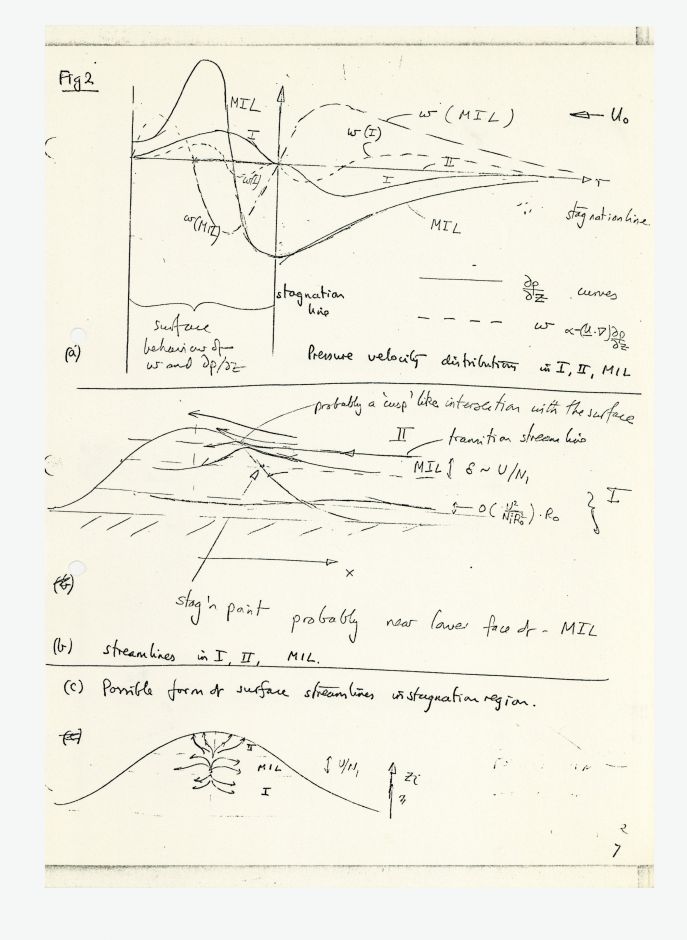 Fig 2
MIL
I
w (MIL)
← U₀
w(I)
II
I
w(I)
r
w(MIL)
MIL
stagnation line.
stagnation
line
∂p/∂z curves
w ∝ -(U·∇)∂p/∂z
surface
behaviour of
w and ∂p/∂z
(a)
Pressure velocity distributions in I, II, MIL
probably a 'cusp' like intersection with the surface
II
transition streamline
MIL δ ~ U/N₁
I
x
stag'n point probably near lower face of MIL
(b) streamlines in I, II, MIL.
(c) Possible form of surface streamlines in stagnation region.
II
MIL
U/N₁
I
Zi
2
7